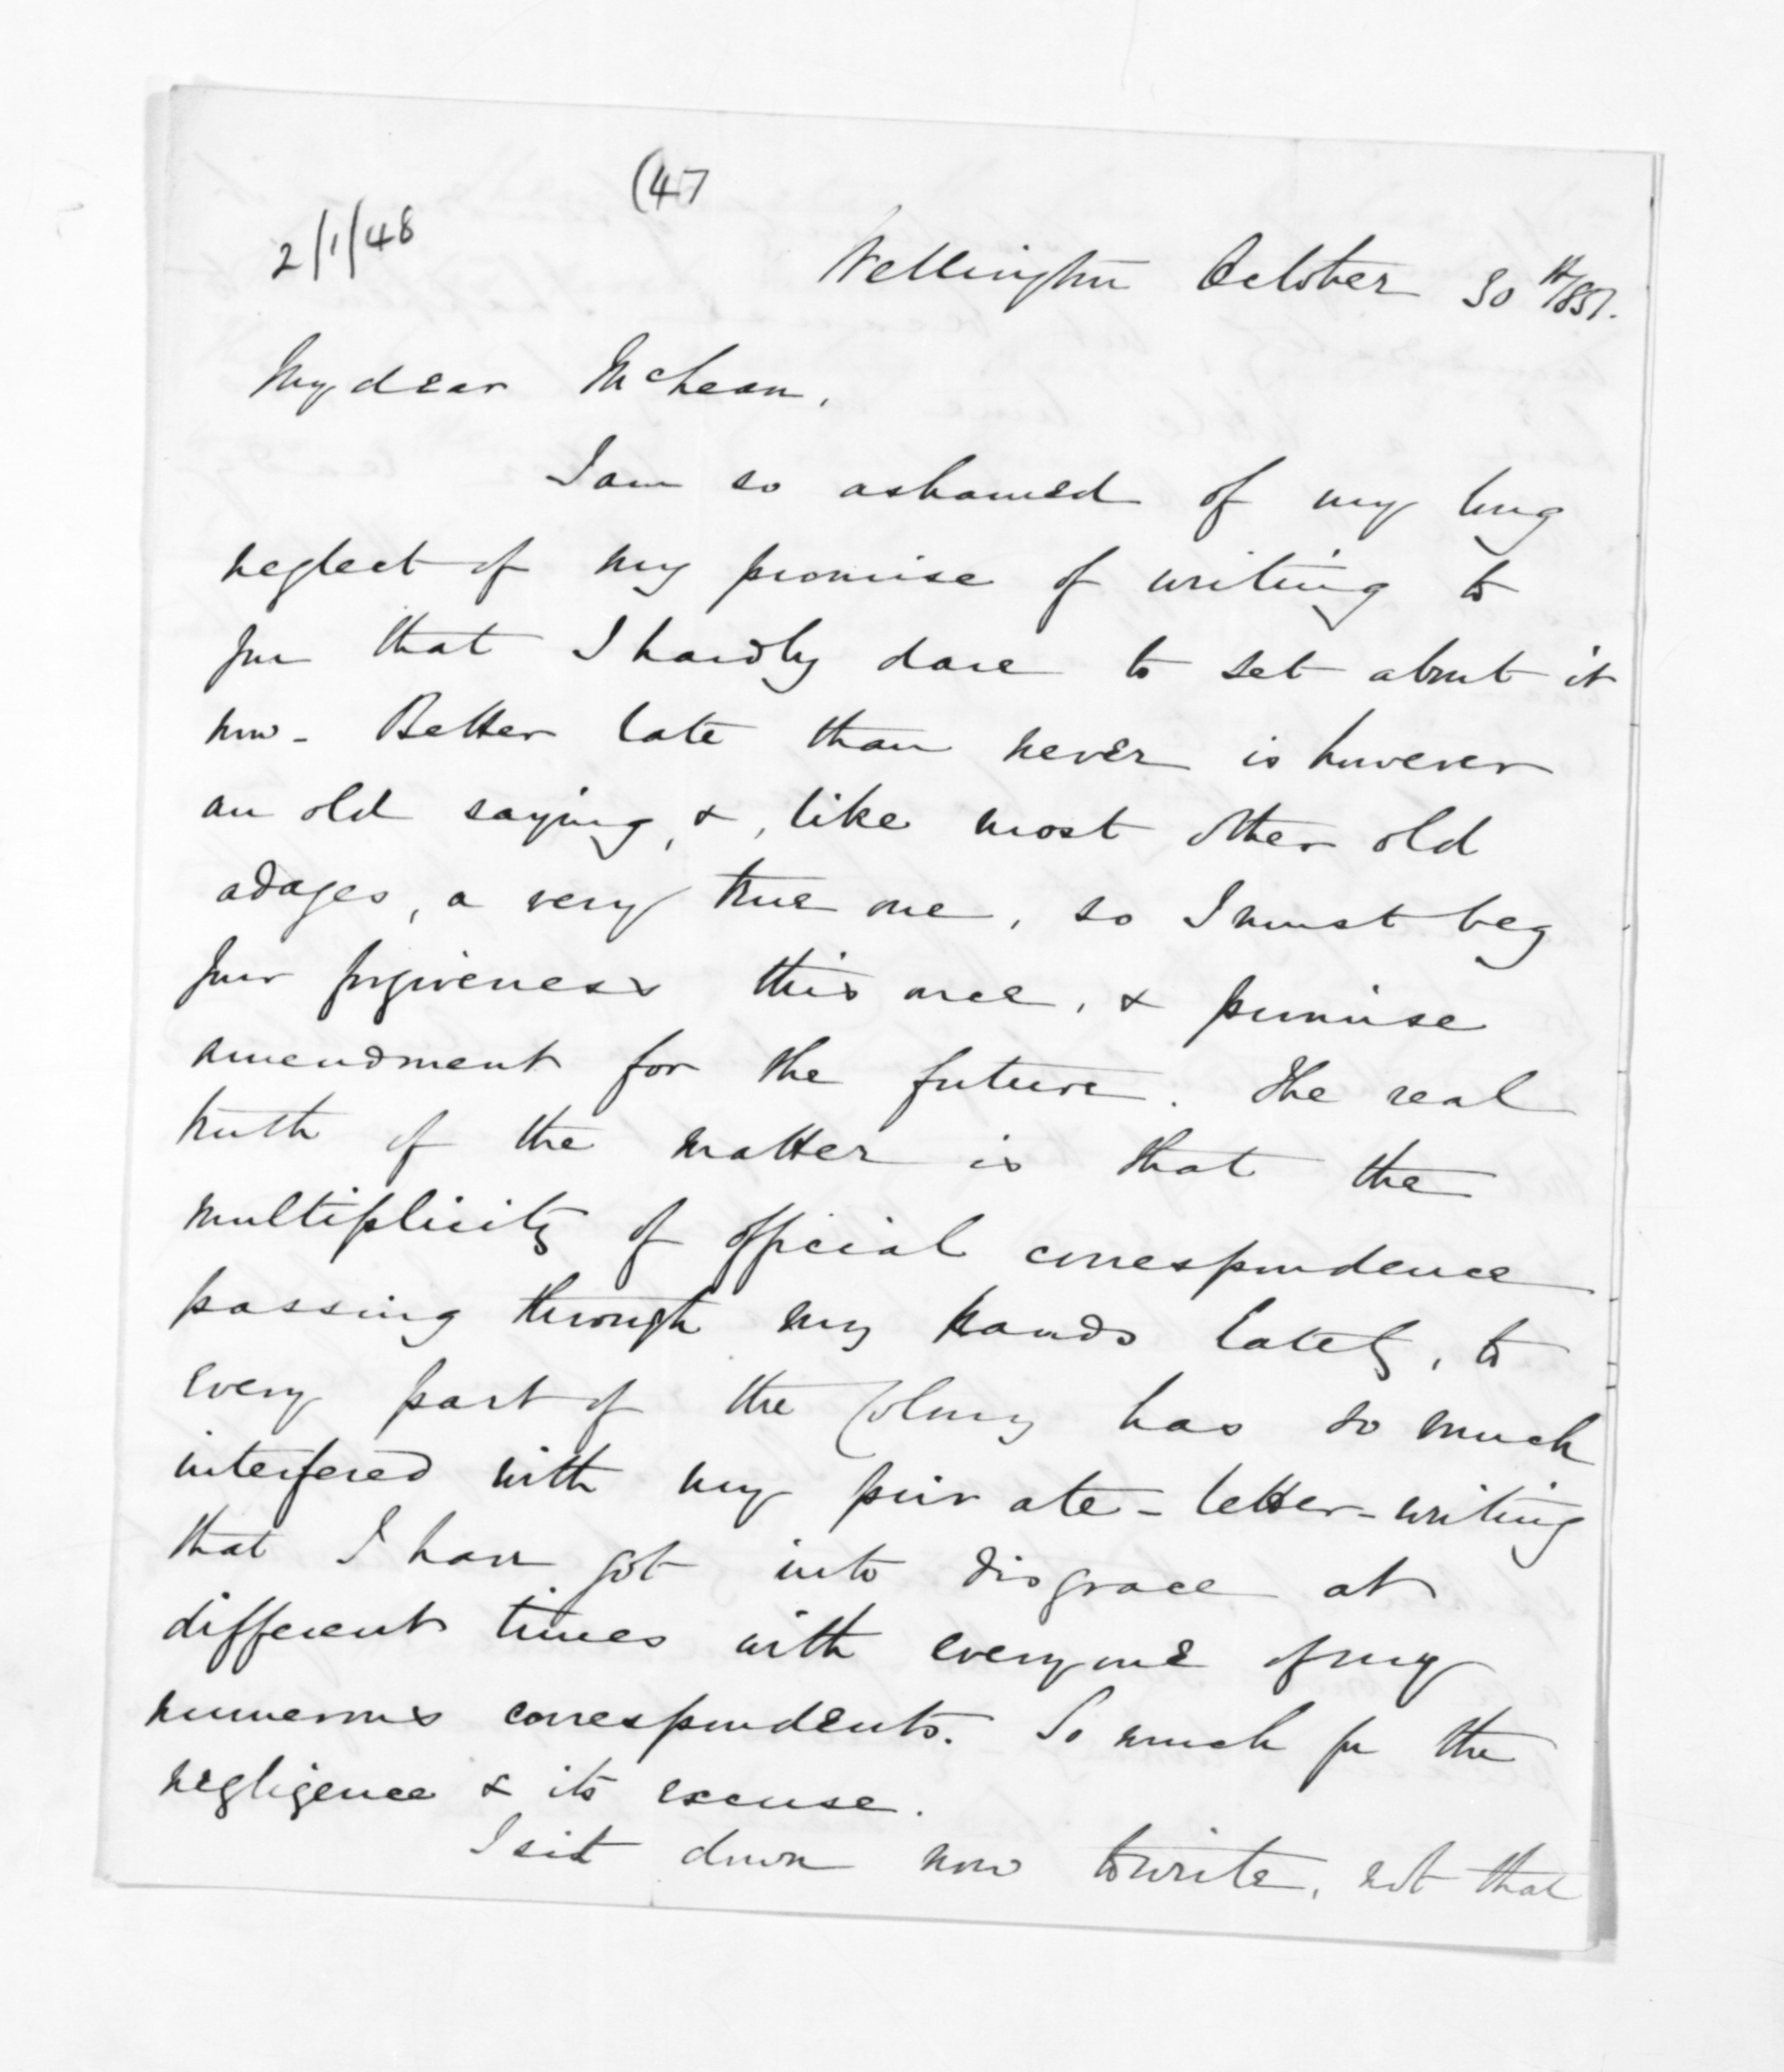 (47
2/1/48
Wellington October 30th/851.
My dear McLean,
I am so ashamed of my long
neglect of my promise of writing to
you that I hardly dare to set about it
now - Better late than never is however
an old saying, &, like most other old
adages, a very true one, so I must beg
your forgiveness this once, & promise
amendment for the future. The real
truth of the matter is that the
multiplicity of official correspondence
passing through my hands lately, to
every part of the Colony has so much
interfered with my private-letter-writing
that I have got into disgrace at
different times with everyone of my
numerous correspondents. So much for the
negligence & its excuse.
I sit down now to write, not that